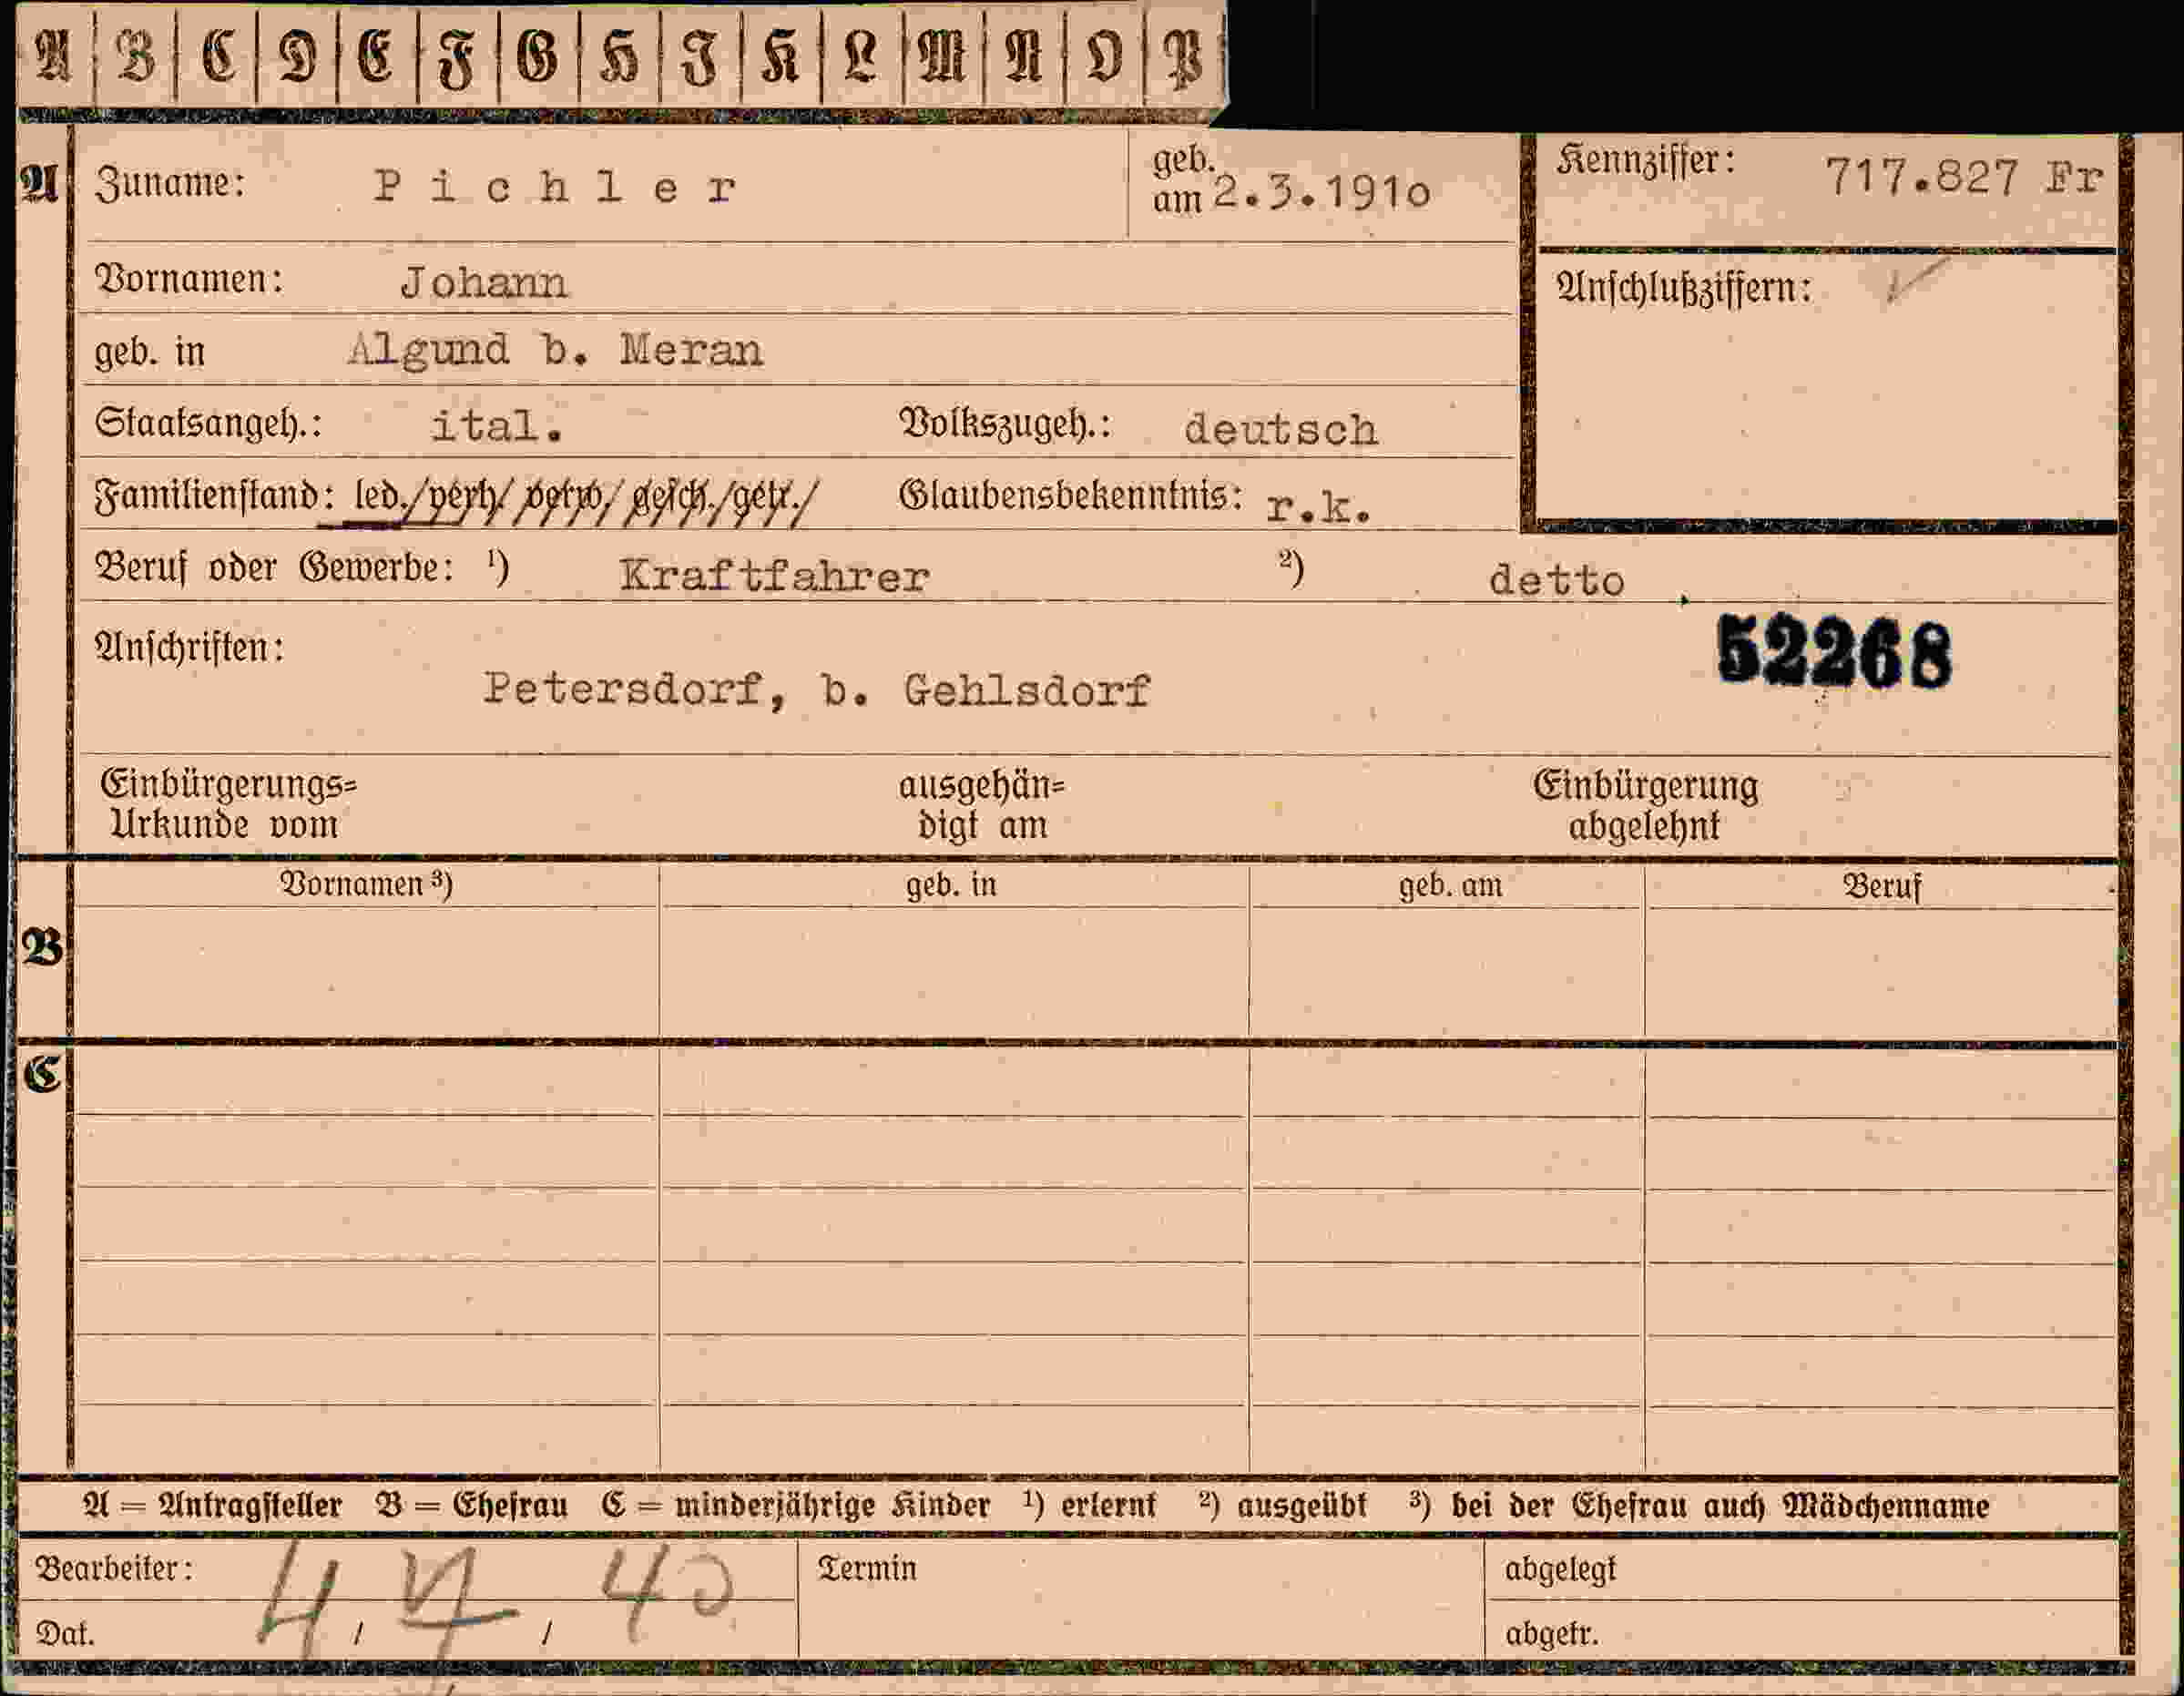 A B C D E F G H I K L M N O P
A Zuname: Pichler geb. am 2.3.191o Kennziffer: 717.827 Fr
Vornamen: Johann Anschlußziffern:
geb. in Algund b. Meran
Staatsangeh.: ital. Volkszugeh.: deutsch
Familienstand: led./verh/ verw/ gesch./getr./ Glaubensbekenntnis: r.k.
Beruf oder Gewerbe: ¹) Kraftfahrer ²) detto
Anschriften: 52268
Petersdorf, b. Gehlsdorf
Einbürgerungs= ausgehän= Einbürgerung
Urkunde vom digt am abgelehnt
Vornamen ³) geb. in geb. am Beruf
B
C
A = Antragsteller B = Ehefrau C = minderjährige Kinder ¹) erlernt ²) ausgeübt ³) bei der Ehefrau auch Mädchenname
Bearbeiter: Termin abgelegt
Dat. 4 / 7 / 40 abgetr.